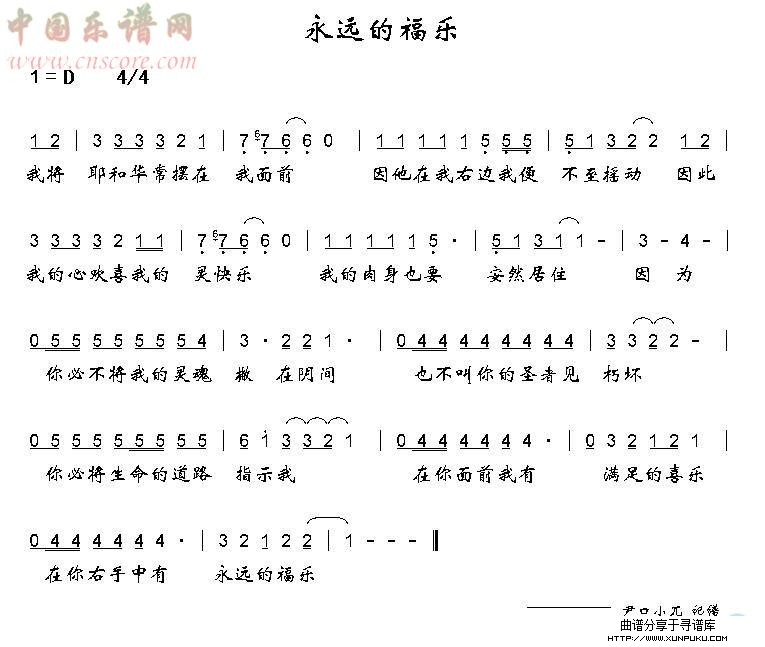 中国乐谱网
www.cnscore.com
永远的福乐
1 = D 4/4
1 2 | 3 3 3 3 2 1 | 7 6 7 6 6 0 | 1 1 1 1 1 5 5 5 | 5 1 3 2 2 1 2 |
我将 耶和华常摆在 我面前 因他在我右边我便 不至摇动 因此
3 3 3 3 2 1 1 | 7 6 7 6 6 0 | 1 1 1 1 1 5 · | 5 1 3 1 1 – | 3 – 4 – |
我的心欢喜我的 灵快乐 我的肉身也要 安然居住 因为
0 5 5 5 5 5 5 5 4 | 3 · 2 2 1 · | 0 4 4 4 4 4 4 4 4 | 3 3 2 2 – |
你必不将我的灵魂 撇 在阴间 也不叫你的圣者见 朽坏
0 5 5 5 5 5 5 5 5 | 6 1 3 3 2 1 | 0 4 4 4 4 4 4 · | 0 3 2 1 2 1 |
你必将生命的道路 指示我 在你面前我有 满足的喜乐
0 4 4 4 4 4 4 · | 3 2 1 2 2 | 1 – – – ‖
在你右手中有 永远的福乐
曲谱分享于寻谱库
HTTP://WWW.XUNPUKU.COM